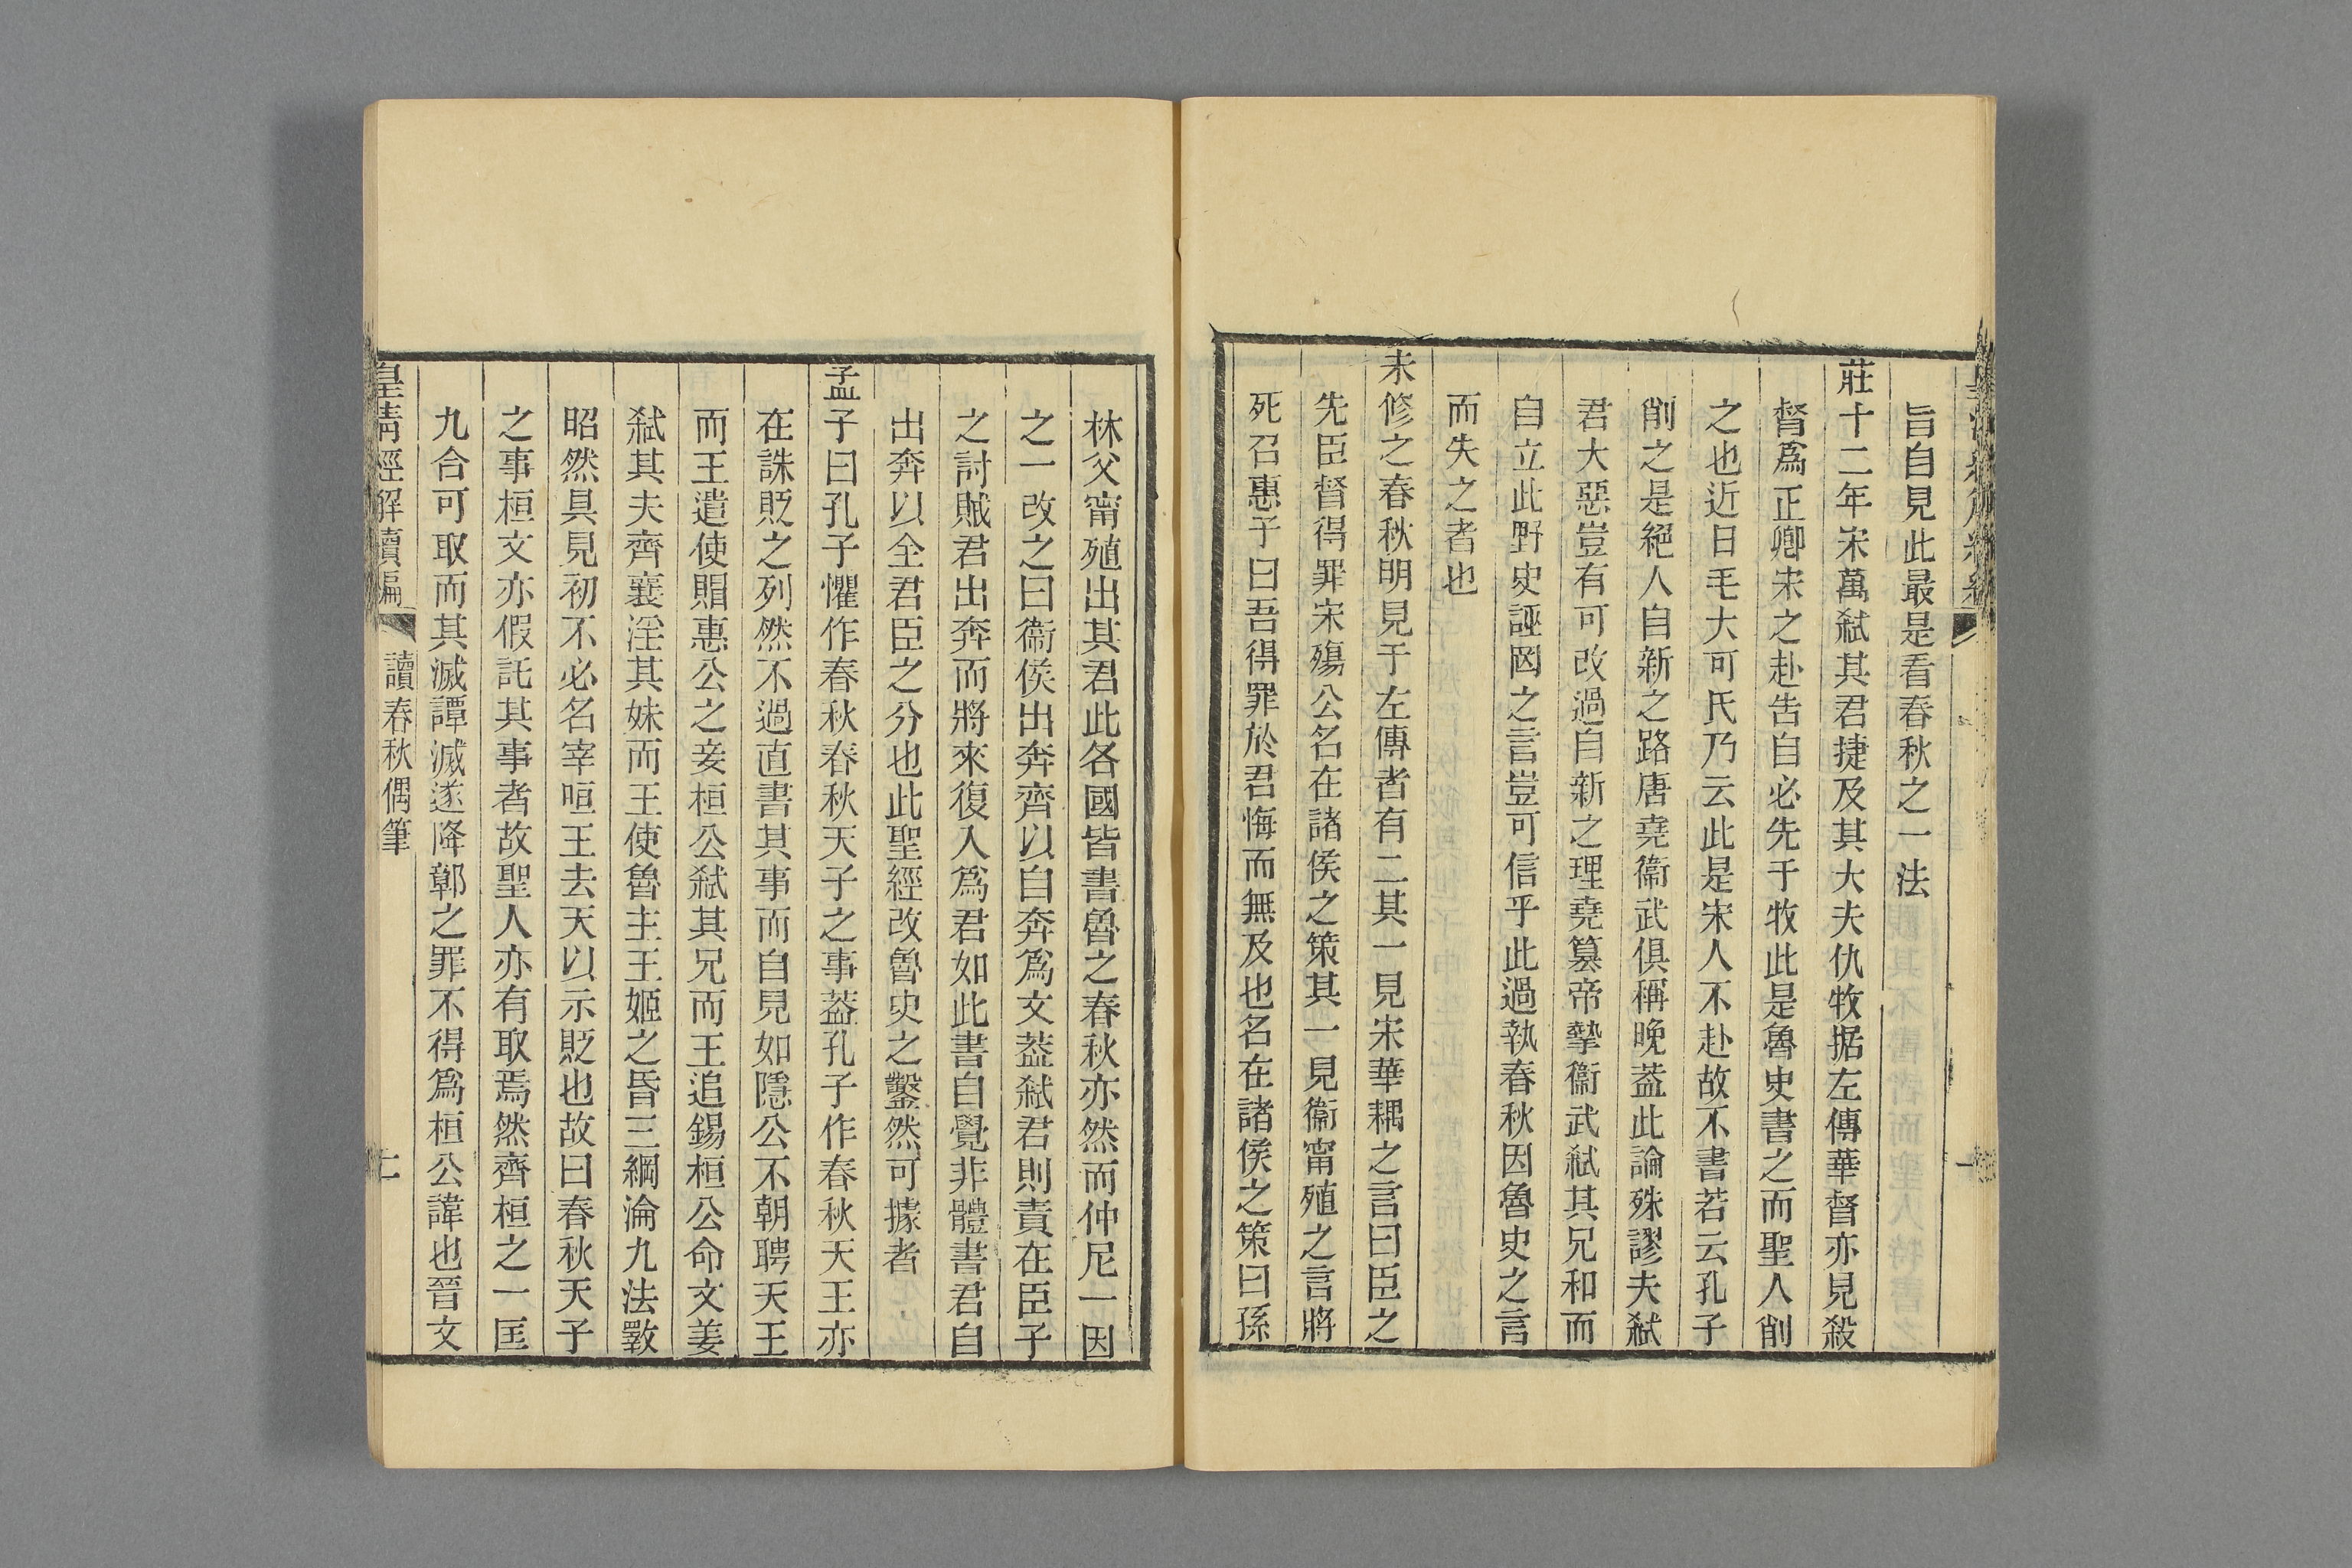 旨自見此最是看春秋之一法
莊十二年宋萬弒其君捷及其大夫仇牧据左傳華督亦見殺
督爲正卿宋之赴告自必先于牧此是魯史書之而聖人削
之也近日毛大可氏乃云此是宋人不赴故不書若云孔子
削之是絕人自新之路唐堯衞武俱稱晚葢此論殊謬夫弒
君大惡豈有可改過自新之理堯篡帝摯衞武弒其兄和而
自立此野史誣罔之言豈可信乎此過執春秋因魯史之言
而失之者也
未修之春秋明見于左傳者有二其一見宋華耦之言曰臣之
先臣督得罪宋殤公名在諸侯之策其一見衞甯殖之言將
死召惠子曰吾得罪於君悔而無及也名在諸侯之策曰孫
林父甯殖出其君此各國皆書魯之春秋亦然而仲尼一因
之一改之曰衞侯出奔齊以自奔爲文葢弒君則責在臣子
之討賊君出奔而將來復入爲君如此書自覺非體書君自
出奔以全君臣之分也此聖經改魯史之鑿然可據者
孟子曰孔子懼作春秋春秋天子之事葢孔子作春秋天王亦
在誅貶之列然不過直書其事而自見如隱公不朝聘天王
而王遣使賵惠公之妾桓公弒其兄而王追錫桓公命文姜
弒其夫齊襄淫其妹而王使魯主王姬之昏三綱淪九法斁
昭然具見初不必名宰咺王去天以示貶也故曰春秋天子
之事桓文亦假託其事者故聖人亦有取焉然齊桓之一匡
九合可取而其滅譚滅遂降鄣之罪不得爲桓公諱也晉文
皇清經解續編 讀春秋偶筆 二